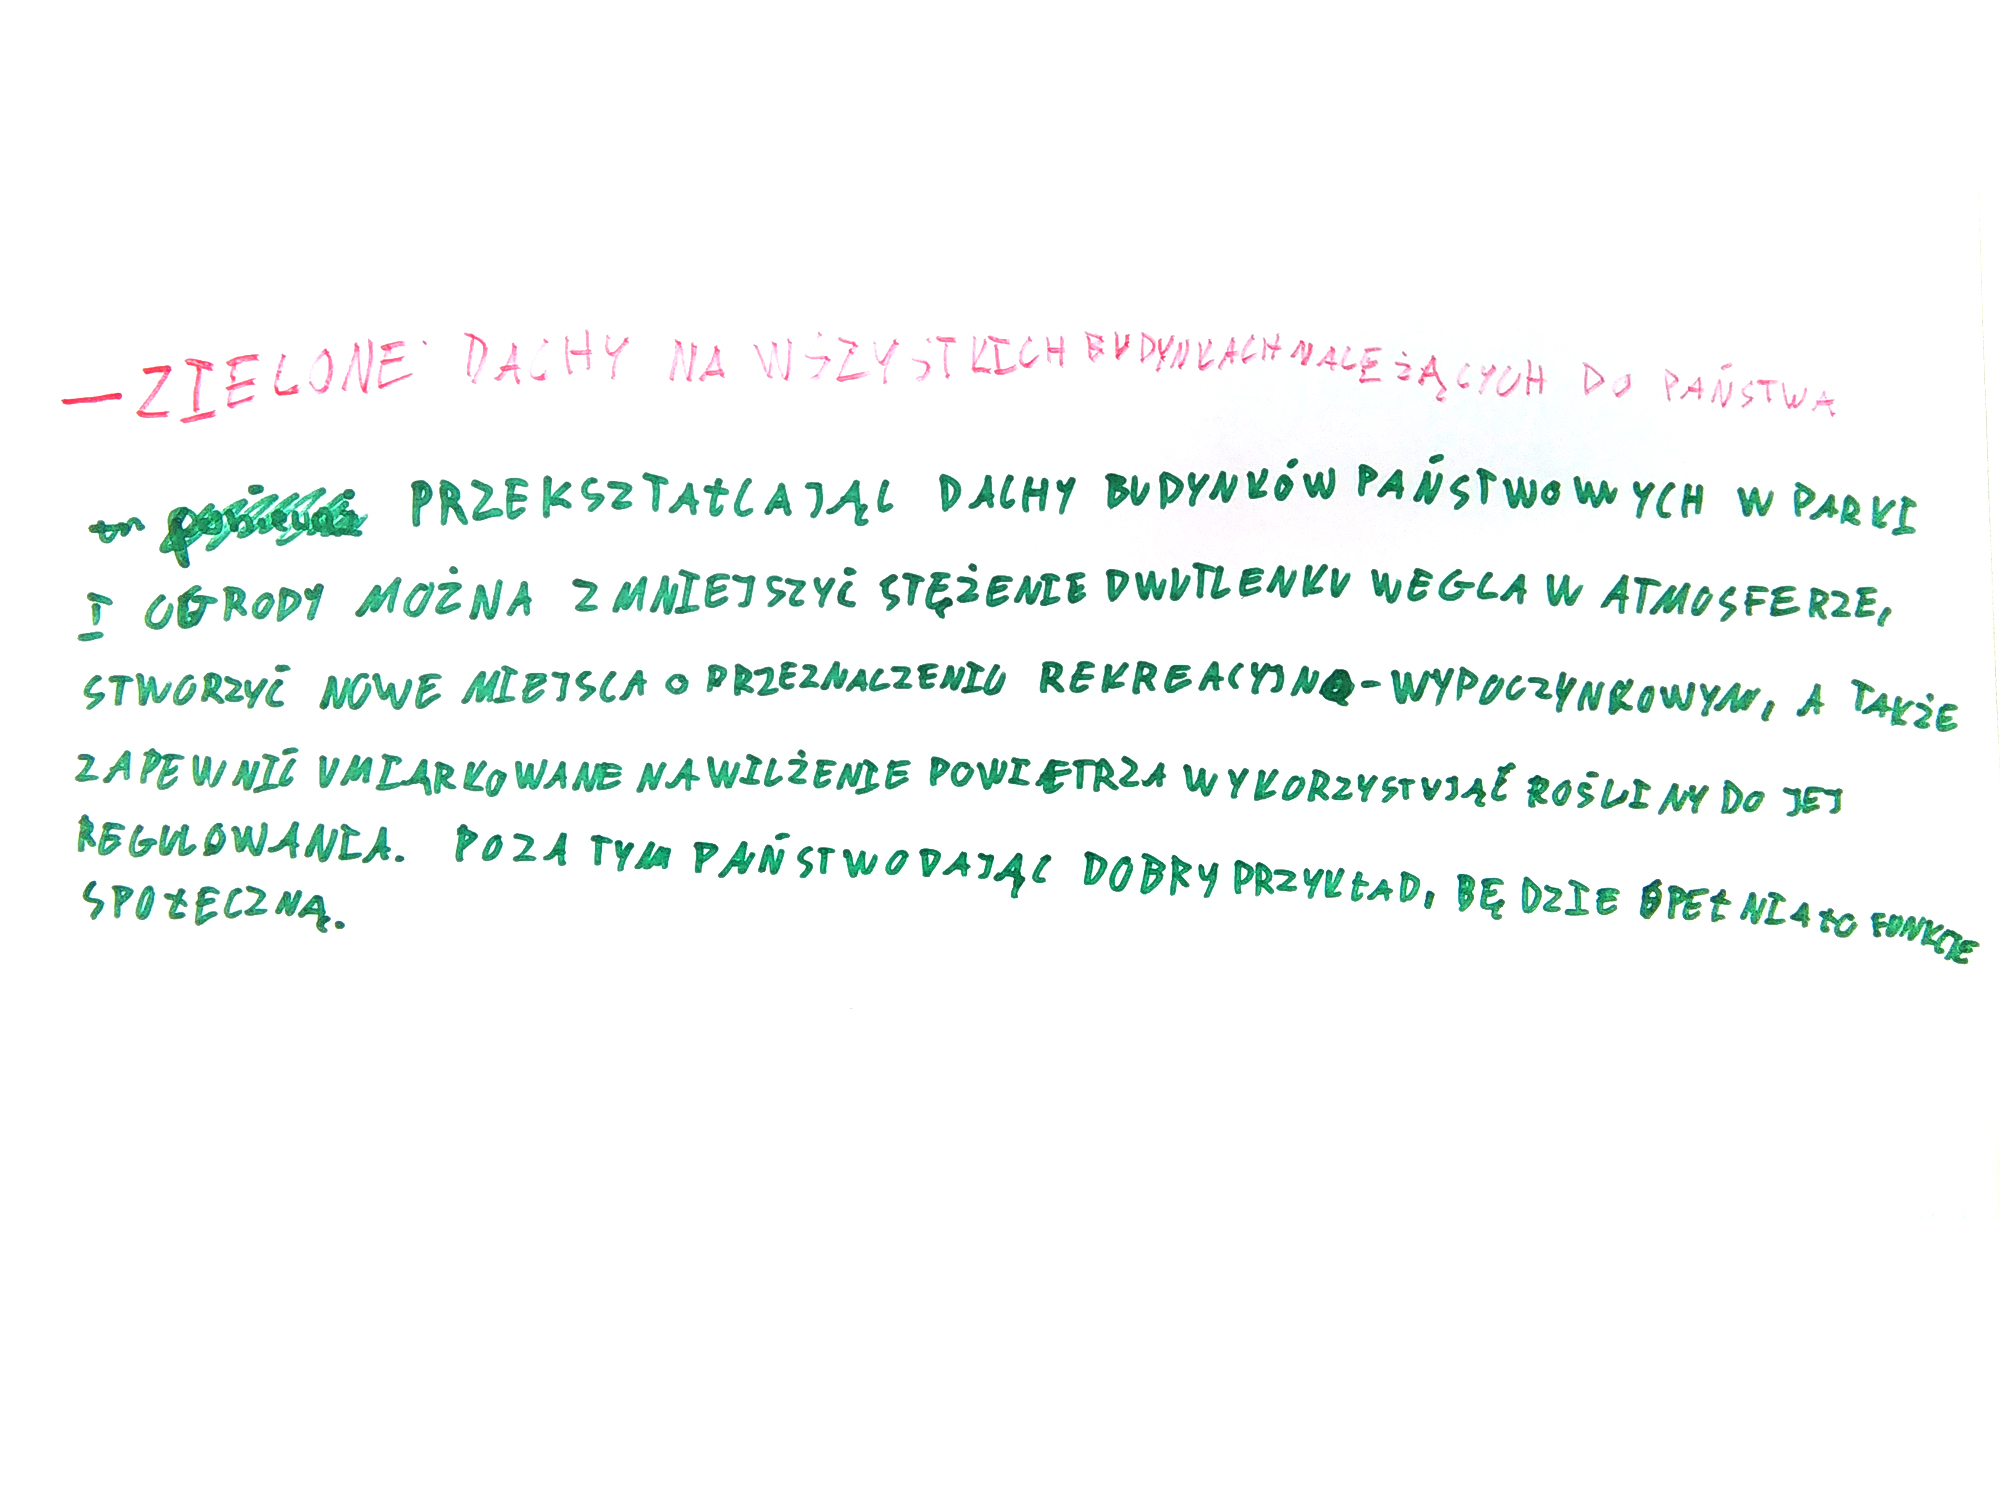 — ZIELONE DACHY NA WSZYSTKICH BUDYNKACH NALEŻĄCYCH DO PAŃSTWA
PRZEKSZTAŁCAJĄC DACHY BUDYNKÓW PAŃSTWOWYCH W PARKI
I OGRODY MOŻNA ZMNIEJSZYĆ STĘŻENIE DWUTLENKU WEGLA W ATMOSFERZE,
STWORZYĆ NOWE MIEJSCA O PRZEZNACZENIU REKREACYJNO-WYPOCZYNKOWYM, A TAKŻE
ZAPEWNIĆ UMIARKOWANE NAWILŻENIE POWIĘTRZA WYKORZYSTUJĄC ROŚLINY DO JEJ
REGULOWANIA. POZA TYM PAŃSTWO DAJĄC DOBRY PRZYKŁAD, BĘDZIE PEŁNIAŁO FUNKCJE
SPOŁECZNĄ.